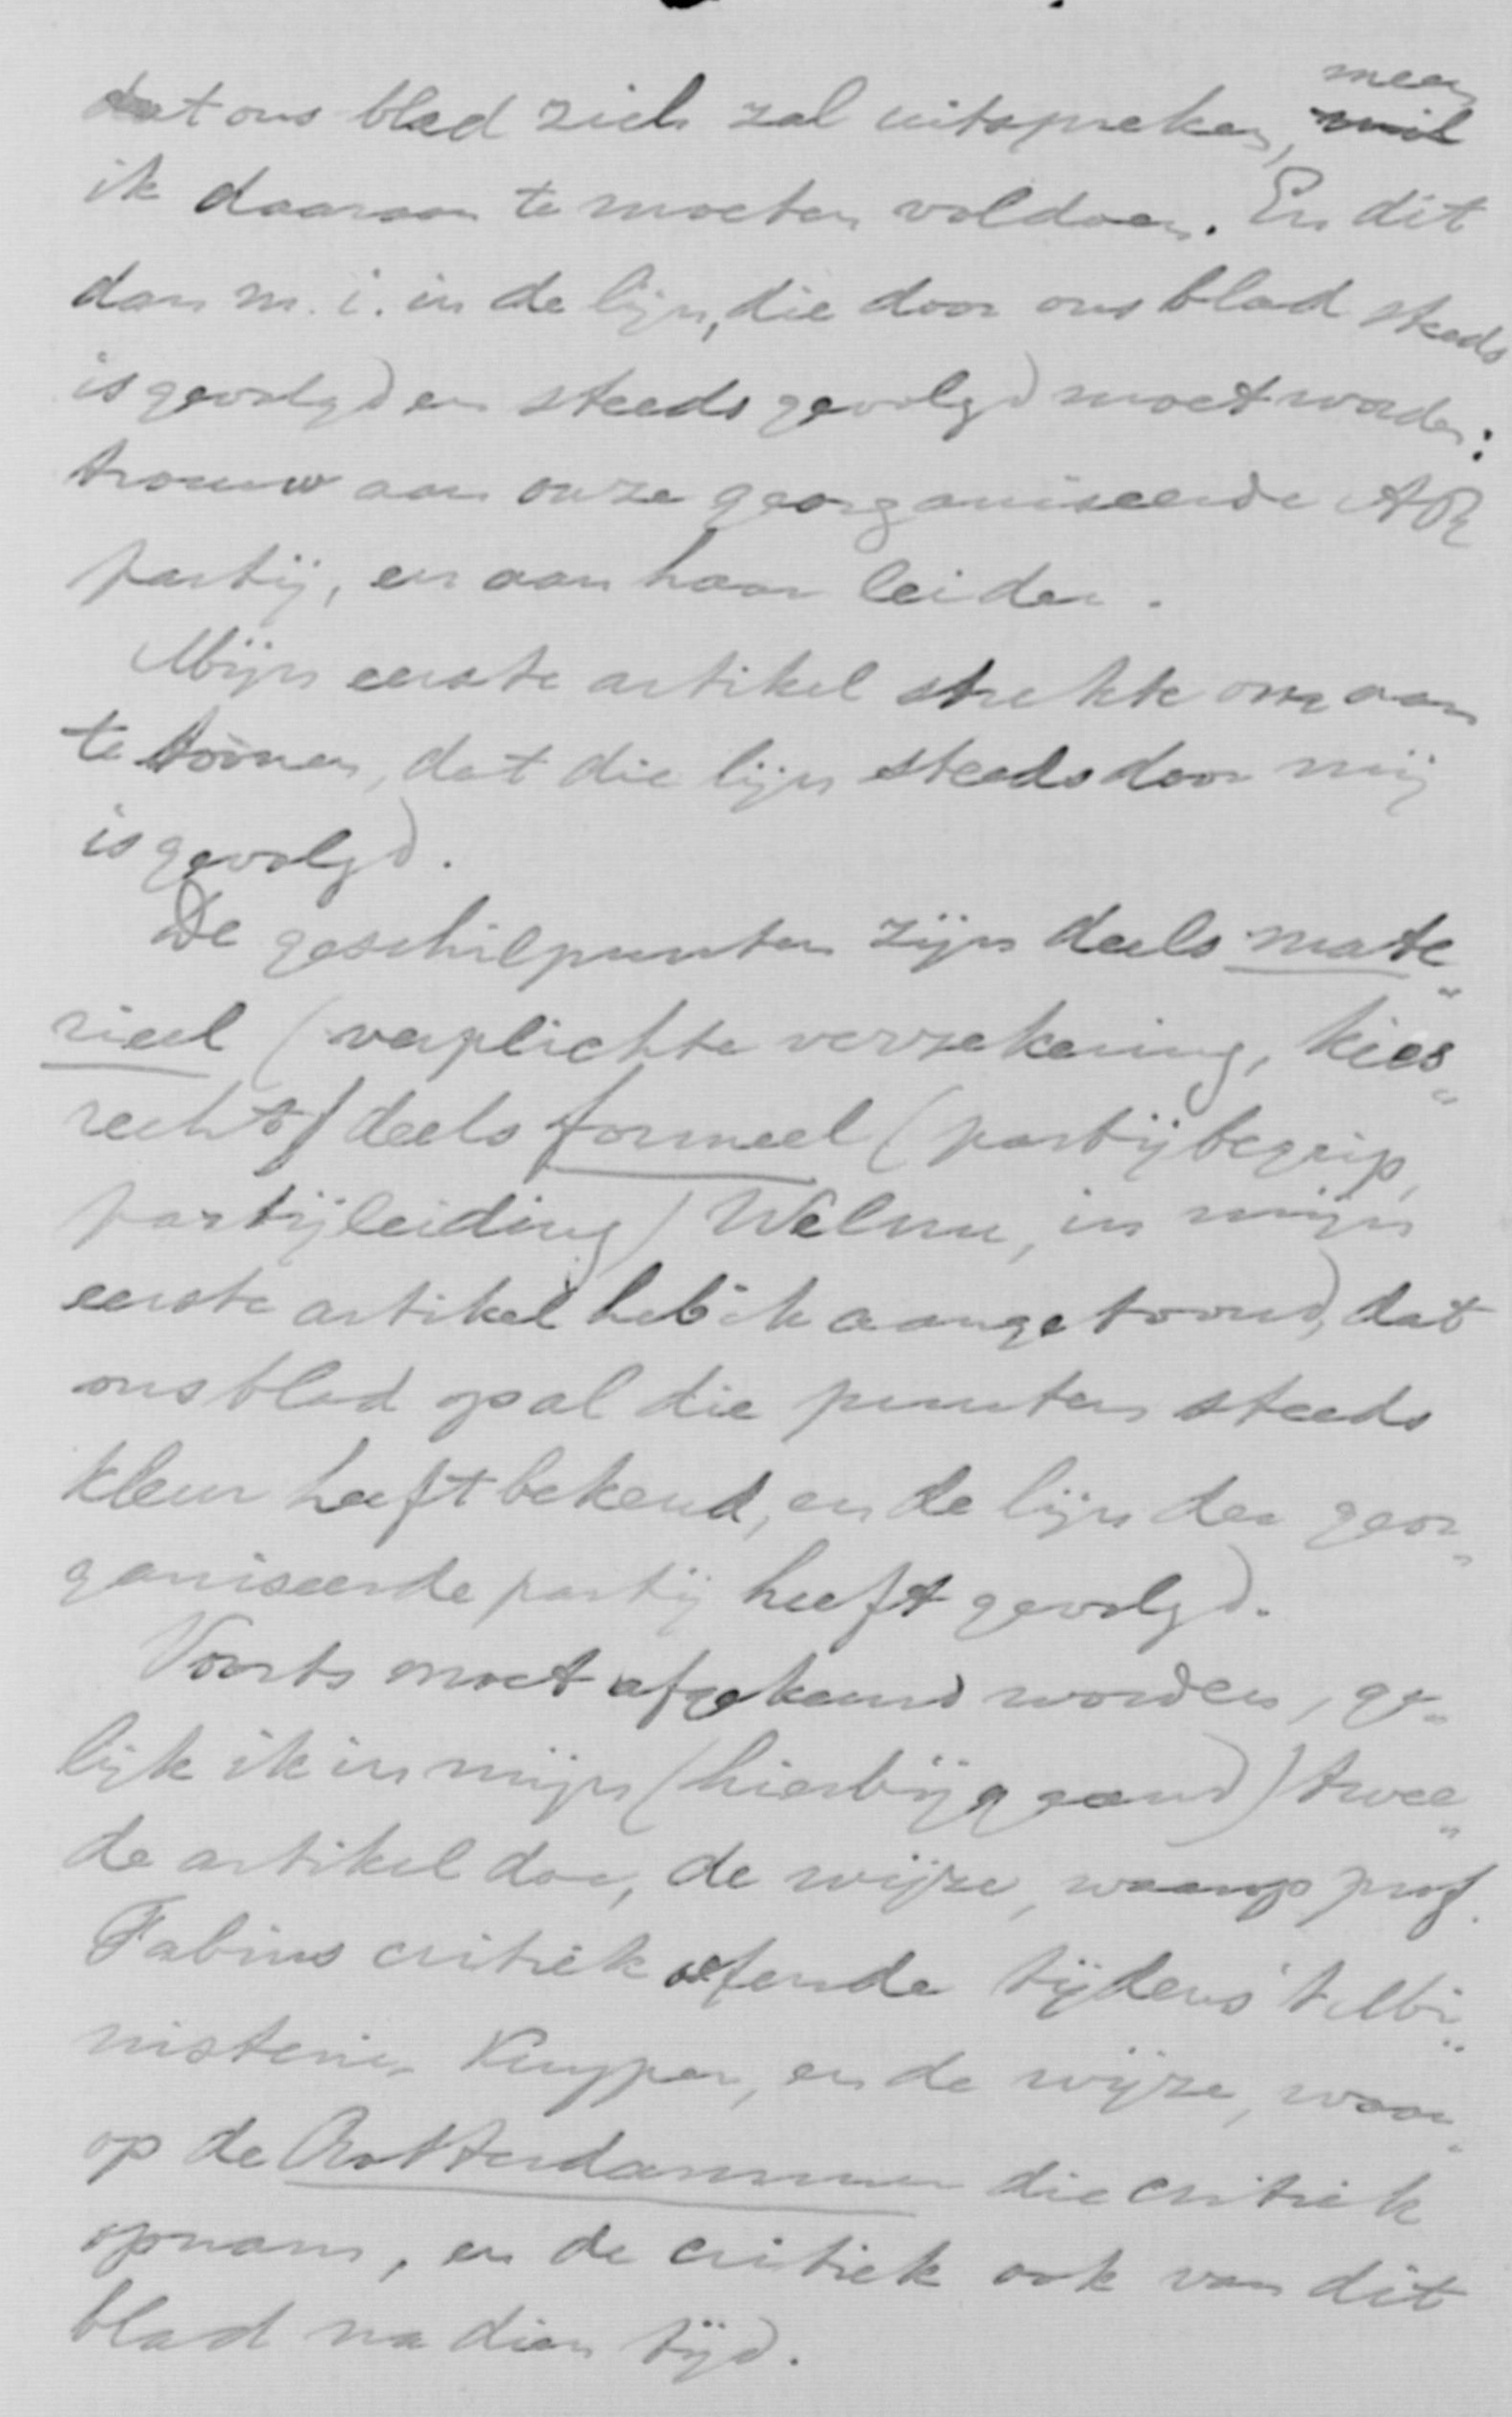 meen
dat ons blad zich zal uitspreken, wil
ik daaraan te moeten voldoen. En dit
dan m.i. in de lijn, die door ons blad steeds
is gevolgd en steeds gevolgd moet worden:
trouw aan onze georganiseerde AR
partij, en aan haar leider.
Mijn eerste artikel strekte om aan
te toonen, dat die lijn steeds door mij
is gevolgd.
De geschilpunten zijn deels mate„
rieel (verplichte verzekering, kies„
recht) deels formeel (partijbegrip,
partijleiding) Welnu, in mijn
eerste artikel heb ik aangetoond, dat
ons blad op al die punten steeds
kleur heeft bekend, en de lijn der geor„
ganiseerde partij heeft gevolgd.
Voorts moet afgekeurd worden, ge„
lijk ik in mijn (hierbijgaand) twee„
de artikel doe, de wijze, waarop prof.
Fabius critiek oefende tijdens 't Mi„
nisterie Kuyper, en de wijze, waar„
op de Rotterdammer die critiek
opnam, en de critiek ook van dit
blad na dien tijd.